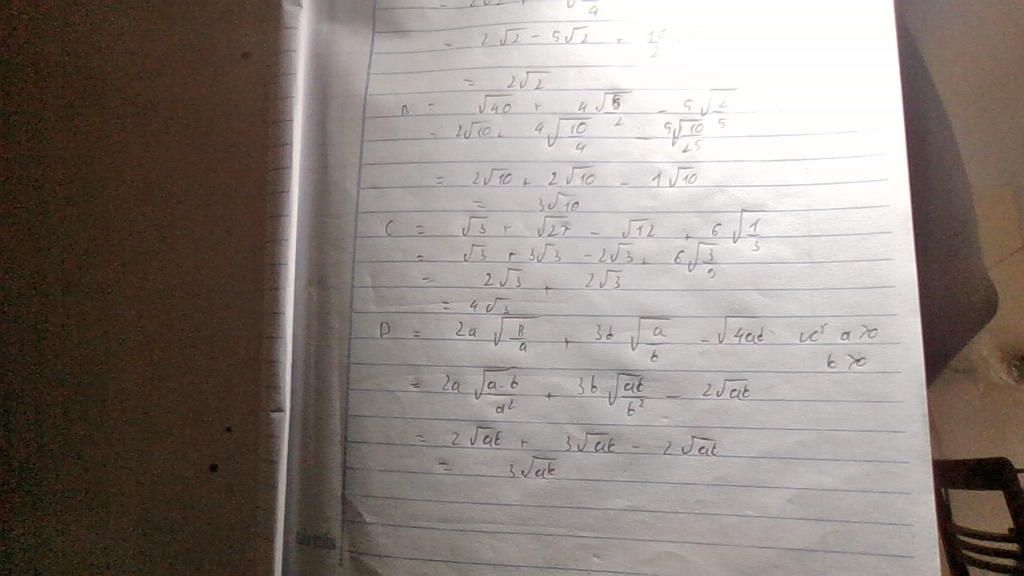 = 2√2 - 5√2 +
= 2√2
B = √40 + 4√5/2 - 5√2/5
= 2√10 + 4√10/4 - 5√10/25
= 2√10 + 2√10 - 1√10
= 3√10
C = √3 + √27 - √12 + 6√1/3
= √3 + 3√3 - 2√3 + 6√3/9
= 2√3 + 2√3
= 4√3
D = 2a√B/a + 3b√a/b - √4ab với a>0 b>0
= 2a√a.b/a² + 3b√ab/b² - 2√ab
= 2√ab + 3√ab - 2√ab
= 3√ab